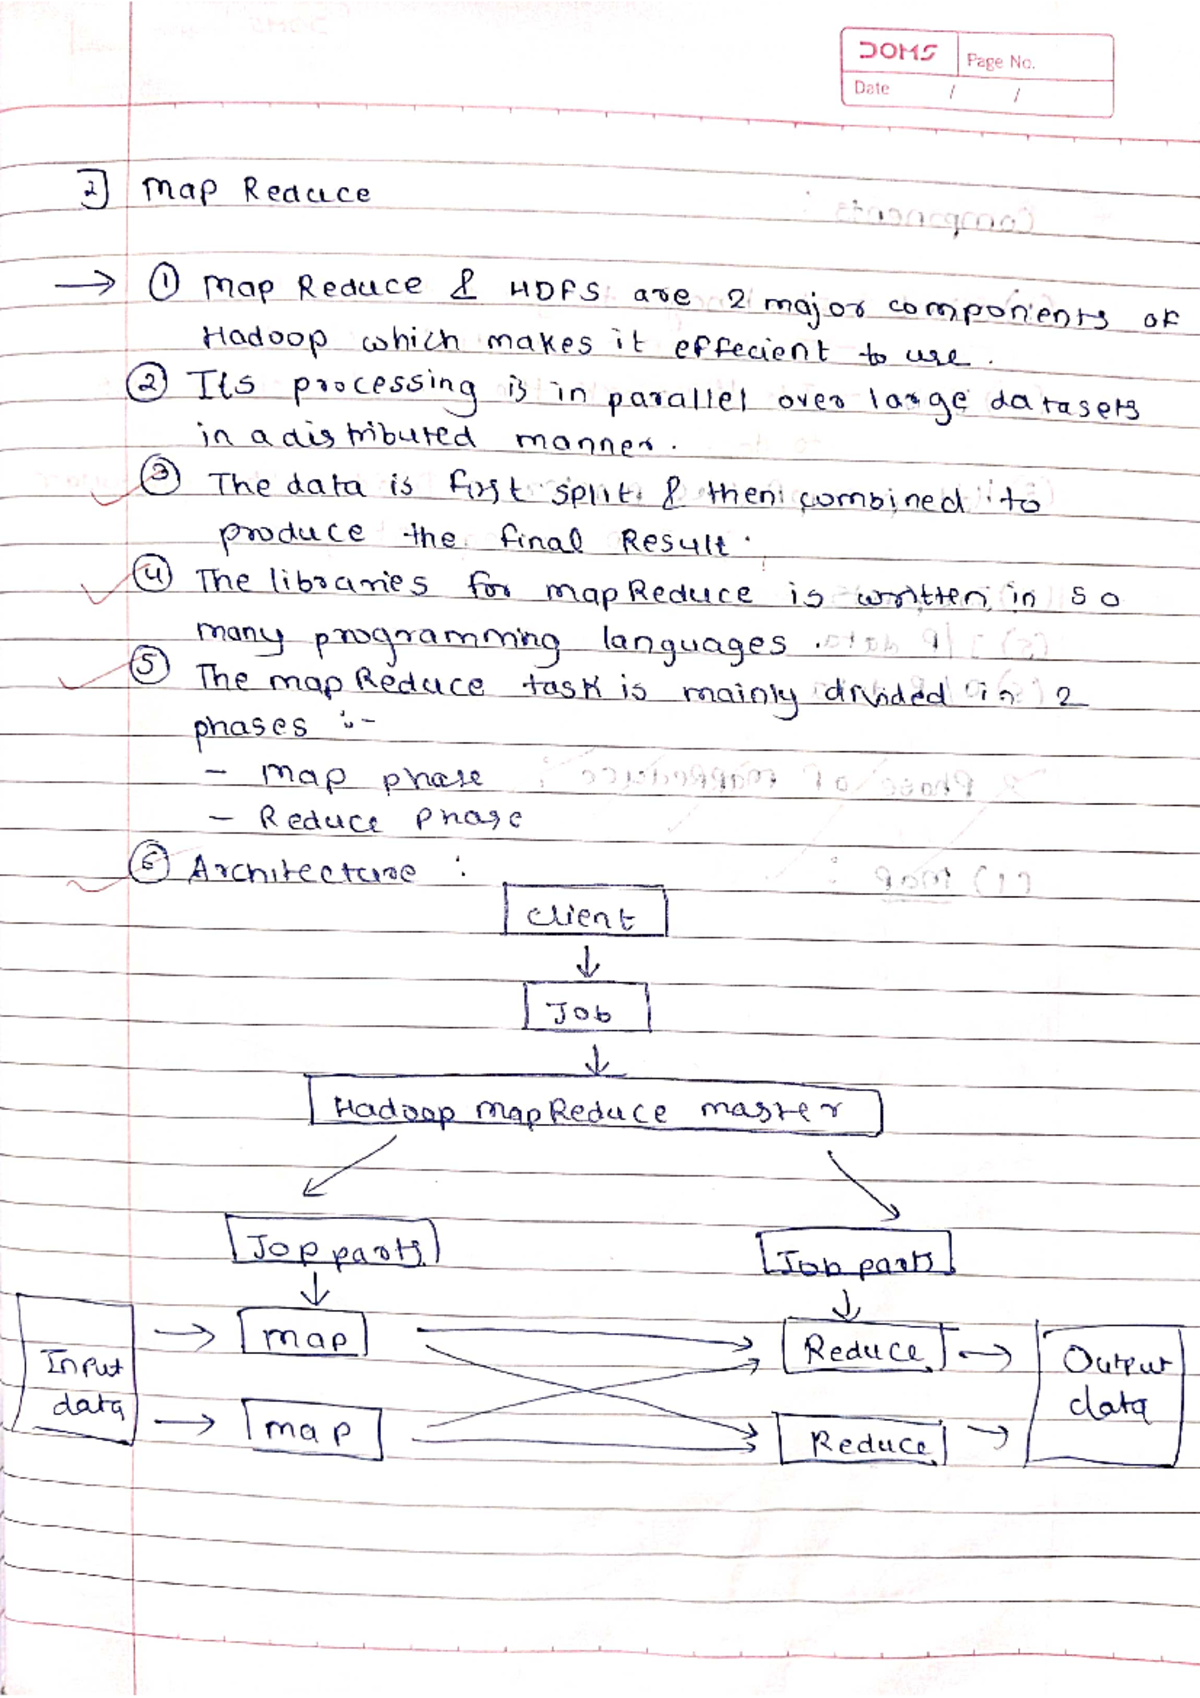 DOMS
Page No.
Date / /
2] Map Reduce
→ ① Map Reduce & HDFS are 2 major components of
Hadoop which makes it effecient to use.
② Its processing is in parallel over large datasets
in a distributed manner.
③ The data is first split & then combined to
produce the final Result.
④ The libraries for mapReduce is written in so
many programming languages.
⑤ The mapReduce task is mainly divided in 2
phases :-
- Map phase
- Reduce Phase
⑥ Architecture :
Client
↓
Job
↓
Hadoop MapReduce master
Jop parts Job parts
↓ ↓
Input data → map Reduce → Output data
→ map Reduce →